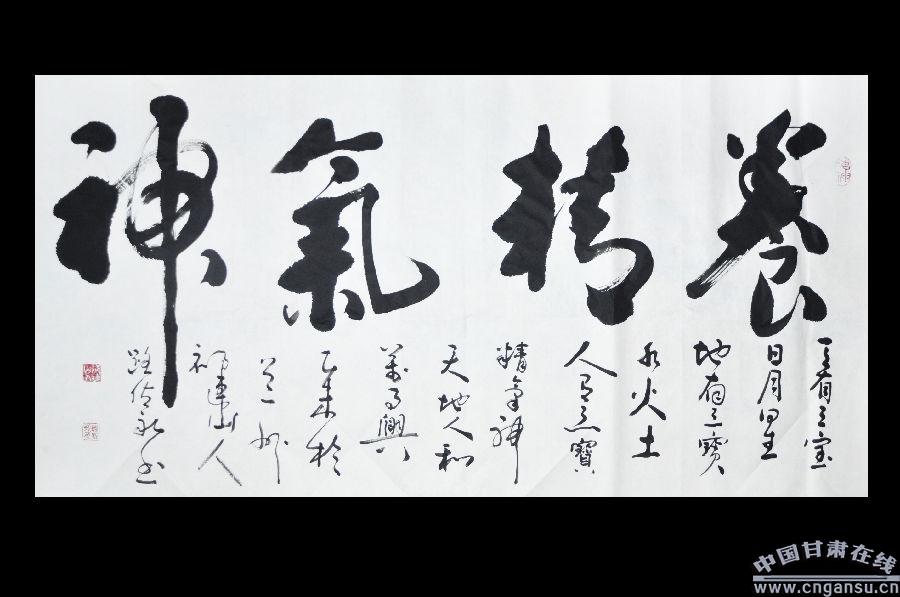 養精氣神
天有三宝
日月星
地有三寶
水火土
人有三寶
精氣神
天地人和
萬事興
乙未於
兰州
祁連山人
路永书
中国甘肃在线
www.cngansu.cn